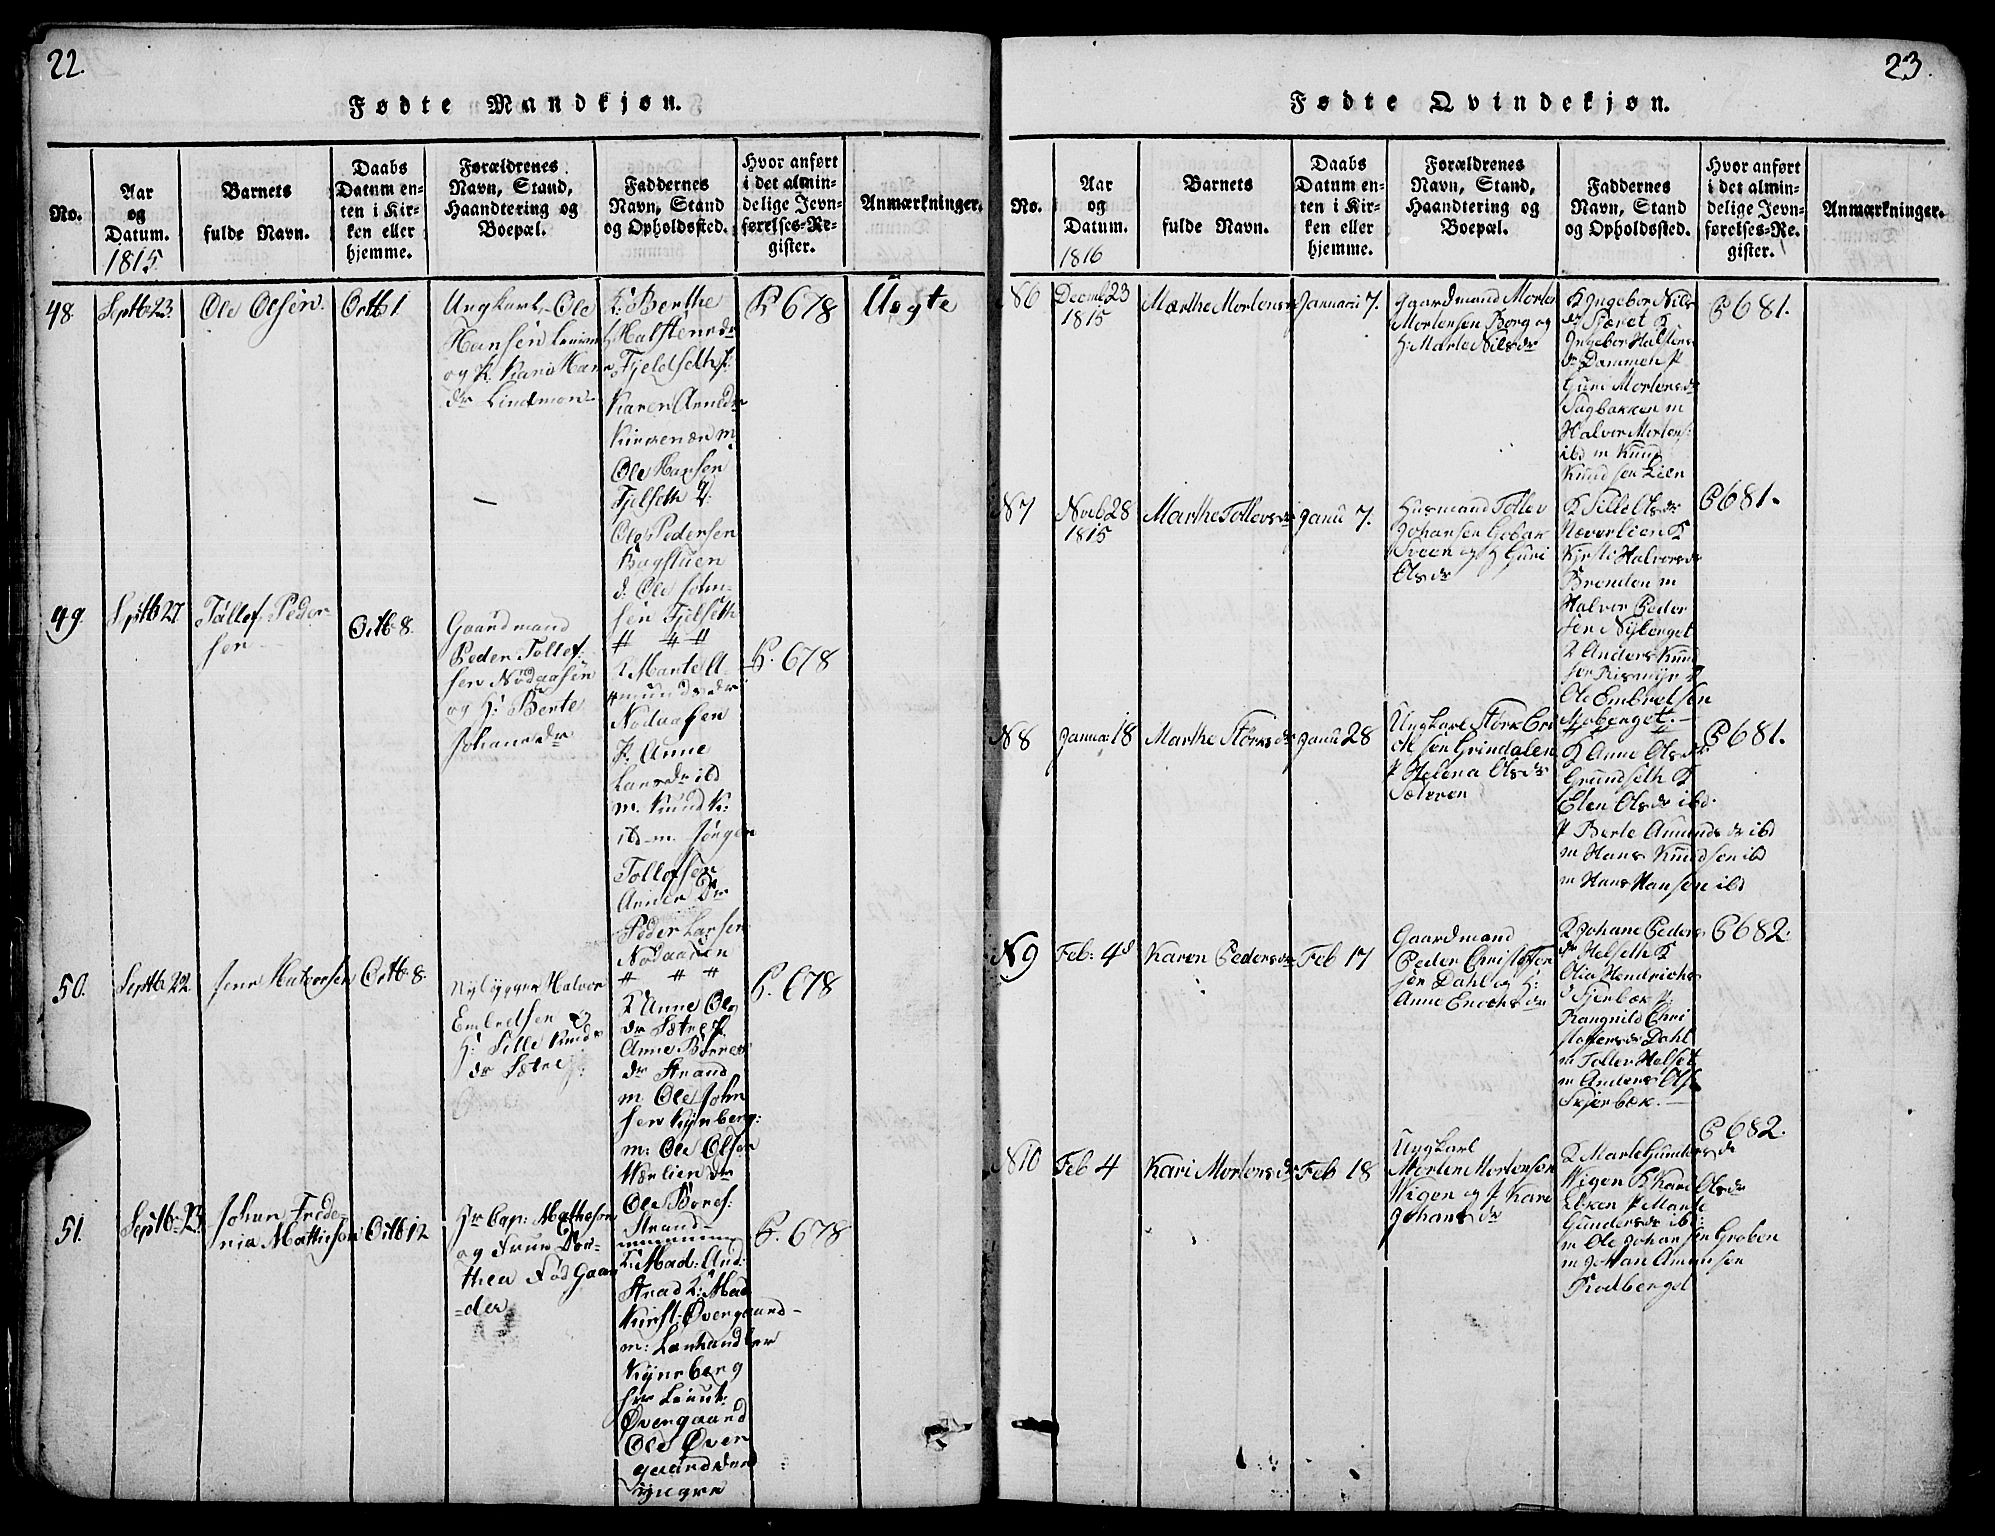 22.
Fødte Mandkjøn.
No.
Aar
og
Datum.
1815
Barnets
fulde Navn.
Daabs
Datum en-
ten i Kir-
ken eller
hjemme.
Forældrenes
Navn, Stand,
Haandtering og
Boepæl.
Faddernes
Navn, Stand
og Opholdssted.
Hvor anført
i det almin-
delige Jevn-
førelses-Re-
gister.
Anmærkninger.
48
Septb 23.
Ole Olsen
Octb 1
Ungkarl Ole
Hansen
og P. Kari Hans
dr
K: Berthe
Halstensdr
Fjeldseth P:
Karen Arnedr
m
Ole Hansen
Fjelseth
Ole Pedersen
Bagstuen
d. Ole John-
sen Fjelseth
P 678
Uegte
49.
Septb 27
Tollef Peder-
sen
Octb 8.
Gaardmand
Peder Tollef-
sen Nodaasen
og H: Berte
Johansdr
K Marte A-
mundsdr
Nodaasen
P. Anne
Larsdr ibd
m. Knud K:
ibd m. Jørgen
Tollofsen
Peder Larsen
Nodaasen
P. 678
50.
Septb 22
Jens Halvorsen
Octb 8
Nybygger Halvor
Embretsen og
H: Sille Knuds
dr Sætre
K Anne Ols
dr Sætre P.
Anne Børres
dr Strand
m. Ole John
sen Kynberg:
m: Ole Olsen
Ole Børes:
Strand
P. 678
51.
Septb 23
Johan Frede-
ric Mathesen
Octb 12
Hr Cap: Mathesen
og Frue Dor-
thea Fød Gaar
der
K: Mad: And:
Strad K: Mad
Kirst: Øvergaard
m: Lenhandler
Kynsberg
Hr Lieut:
Øvergaard
Ole Øver
gaard den
yngre
P. 678
23.
Fødte Qvindekjøn.
No.
Aar
og
Datum.
1816
Barnets
fulde Navn.
Daabs
Datum en-
ten i Kir-
ken eller
hjemme.
Forældrenes
Navn, Stand,
Haandtering og
Boepæl.
Faddernes
Navn, Stand
og Opholdssted.
Hvor anført
i det almin-
delige Jevn-
førelses-Re-
gister.
Anmærkninger.
N 6
Decmb 23
1815
Marthe Mortensdr
Januari 7.
Gaardmand Morten
Mortensen Berg og
H: Marte Nilsdr
K Ingebor Nils
dr Sjæret K
Ingebor Halstens
dr Dammen P
Guri Mortensdr
Sagbakken m
Halvor Mortens:
ibd m Knud
Knudsen Lien
P 681.
N 7
Novb 28
1815
Marthe Tollevsdr
Janu 7.
Husmand Tollev
Johansen Gobak
Sveen og H Guri
Olsdr
K Sille Olsdr
Næverlien K
Kjersti Halvorsdr
Brenden m
Halvor Peder
sen Nyberget
Anders Knud
sen Rismyr
Ole Embretsen
Moberget.
P 681.
N 8
Janua: 18
Marthe Størksdr
Janu 28
Ungkarl Størk Er
sen Grindalen
P Helena Olsdr
Sæteren
K Anne Olsdr
Grundseth K
Elen Olsdr ibd.
P Berte Amunds dr ibd
m Hans Knudsen ibd
m Hans Hansen ibd
P 681.
N 9
Feb: 4d
Karen Pedersdr
Feb 17
Gaardmand
Peder Christoffer
sen Dahl og H:
Anne Erichsdr
K Johane Peders
dr Helseth K
Olia Hendrichs
dr Skjerbæk P:
Rangnild Chri
stoffersdr Dahl
m Tollev Helset
m Anders Ols
Skjerbæk.
P 682.
N 10
Feb 4
Kari Mortensdr
Feb 18
Ungkarl
Morten Mortensen
Wigen og P Kari
Johansdr
K Marte Gundersdr
Wigen K Kari Olsdr
P Marte
Gundersdr ibd
m Ole Johansen Groben
m Johan Amunsen
Rodberget
P 682.